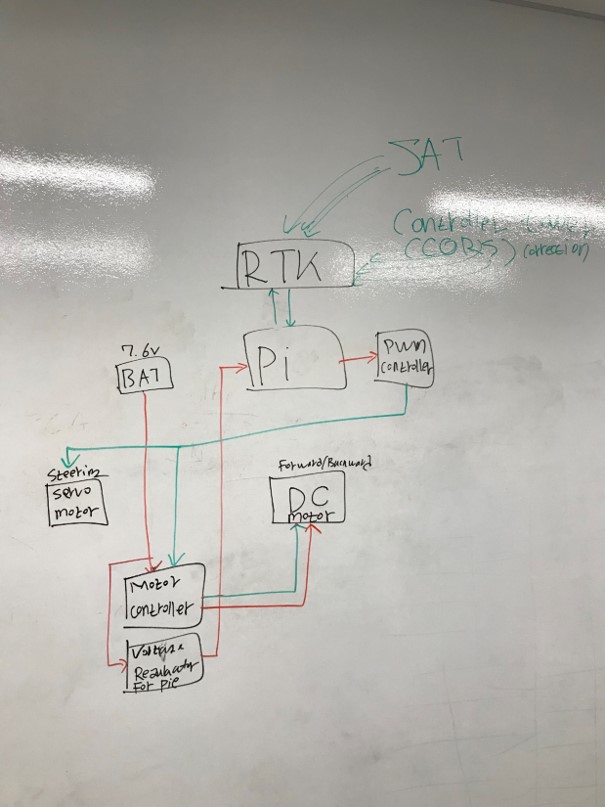 SAT
Controller
(CORS) Correction)
RTK
7.6V
BAT
Pi
PWM
Controller
Steering
Servo
motor
Forward/Backward
DC
motor
Motor
Controller
Regulator
For Pie